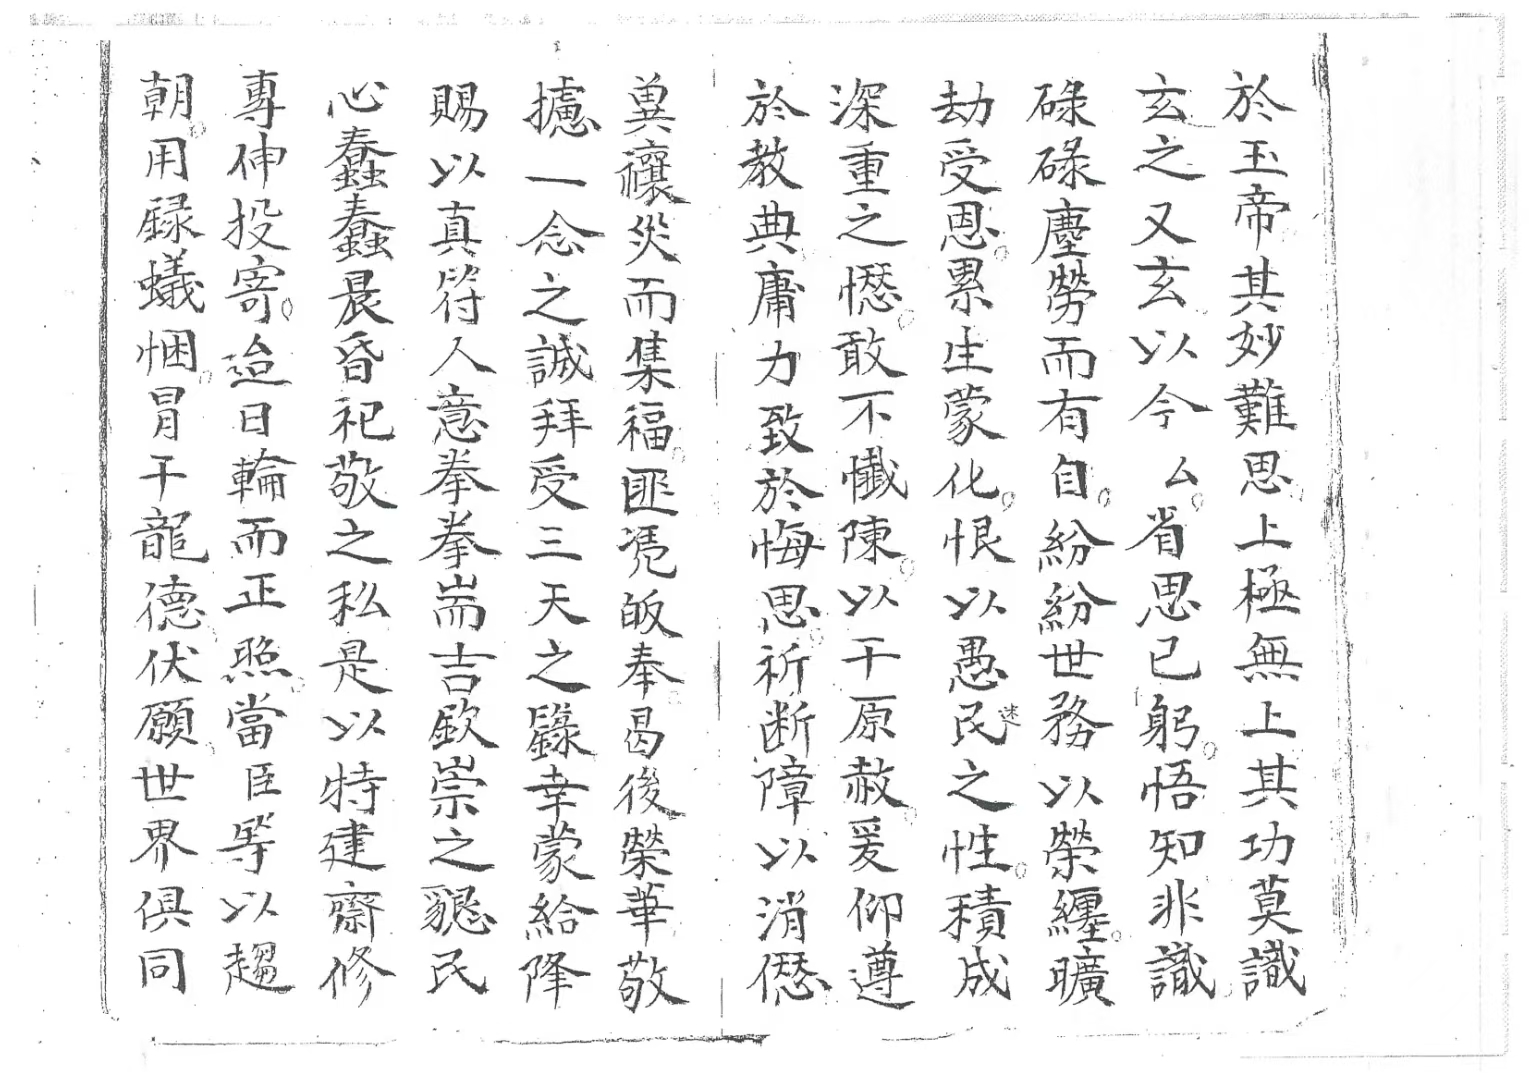 於玉帝其妙難思上極無上其功莫識
玄之又玄以今厶省思己躬悟知非識
碌碌塵勞而有自紛紛世務以榮纏曠
劫受恩累生蒙化恨以愚民迷之性積成
深重之愆敢不懺陳以干原赦爰仰遵
於教典庸力致於悔思祈断障以消愆
兾禳災而集福匪凴皈奉曷後榮華敬
攄一念之誠拜受三天之籙幸蒙給降
賜以真符人意拳拳耑吉欽崇之懇民
心蠢蠢晨昏祀敬之私是以特建齋修
專伸投寄迨日輪而正照當臣等以趨
朝用録蟻悃冒干龍德伏願世界俱同